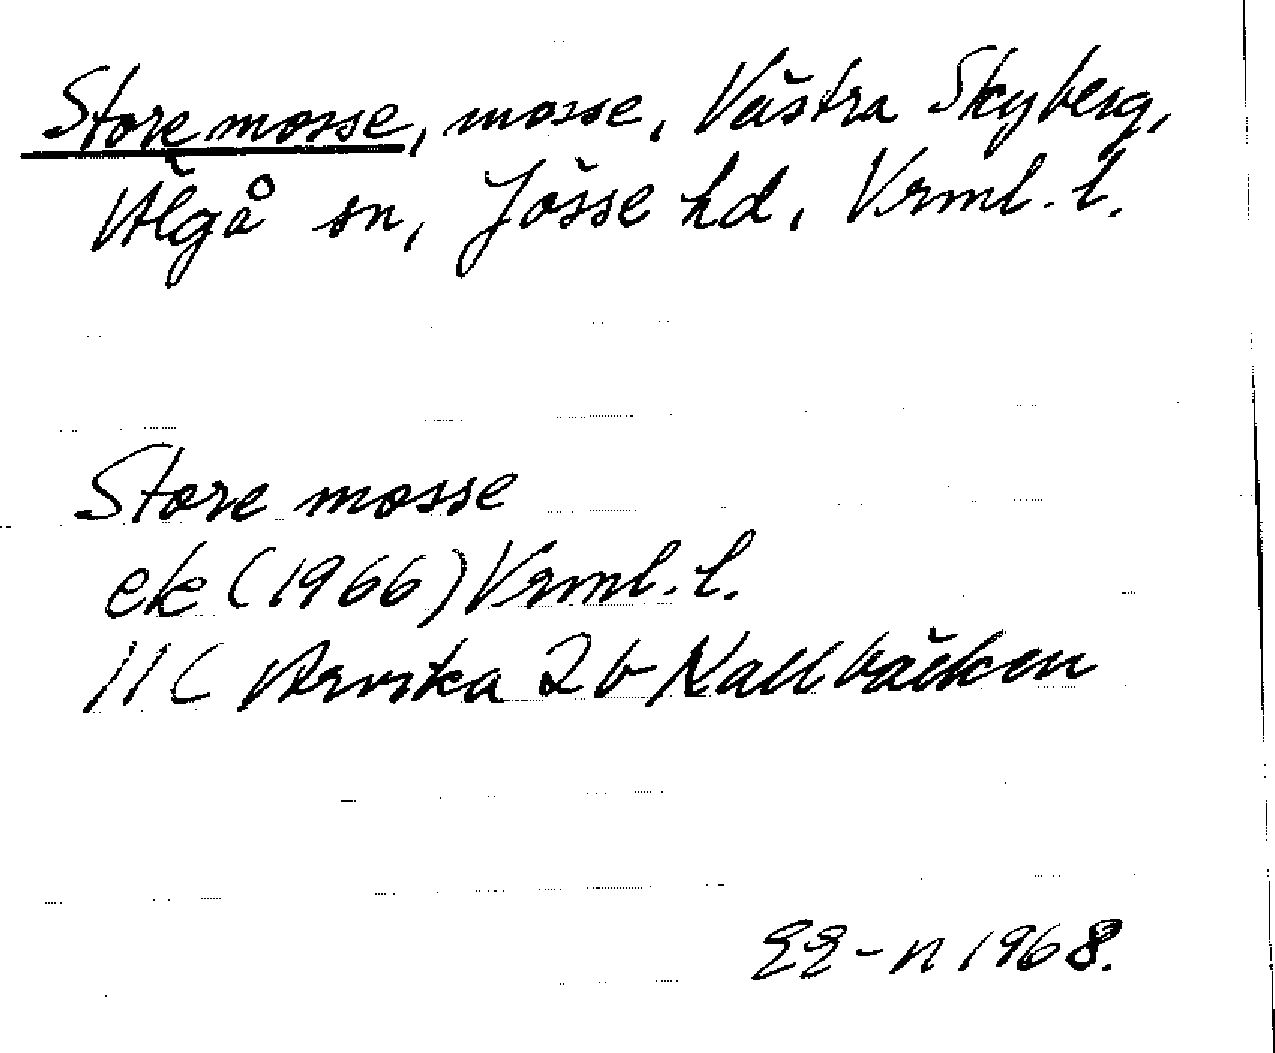 Store mosse, mosse, Västra Skyberg,
Älgå sn, Jösse hd, Vrml. l.
Store mosse
ek (1966) Vrml. l.
11C Arvika 2b Kallbäcken
EE-n 1968.